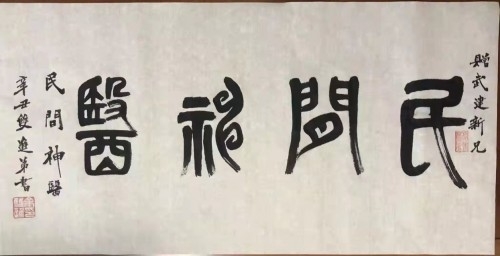 贈武建新兄
民間神醫
民間神醫
辛丑雙進第書